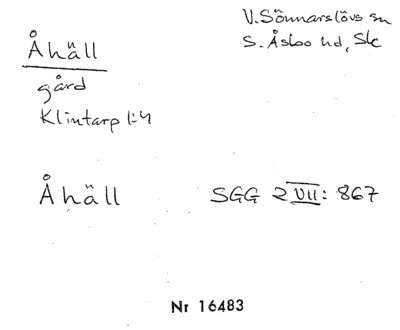 Åhäll
V. Sönnarslövs sn
S. Åsbo hd, Sk
gård
Klintarp 1:4
Åhäll SGG 2 VII: 867
Nr 16483